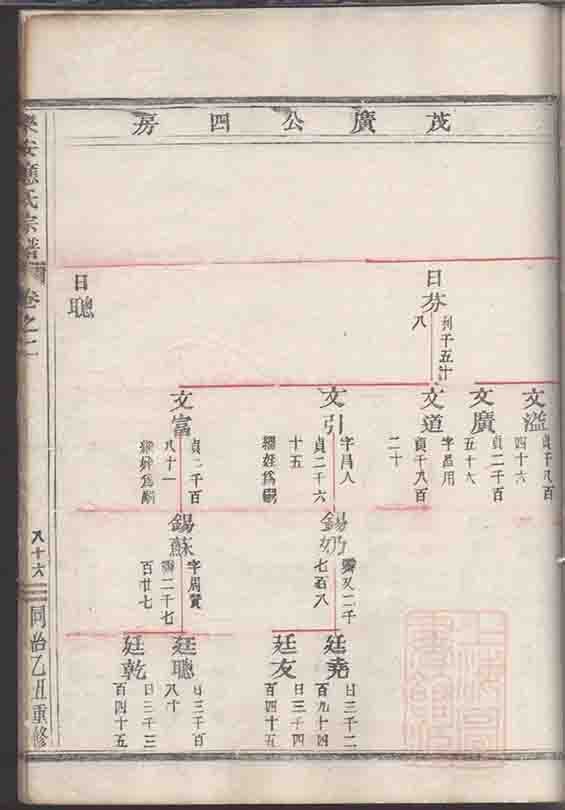 茂廣公四房
文溢
貞千八百
四十六
文廣
貞二千百
五十六
日芬
列千五廿
八
文道
字昌用
貞千八百
二十
文引
字昌人
貞二千六
十五
繼姪為嗣
錫
七百八
廷堯
日三千二
百九十四
廷友
日三千四
百四十五
文富
貞二千百
八十一
繼姪為嗣
錫蘇
字周贊
霽二千七
百廿七
廷聰
日三千百
八十
廷乾
日三千三
百四十五
日聰
樂安應氏宗譜
卷之二
八十六
同治乙丑重修